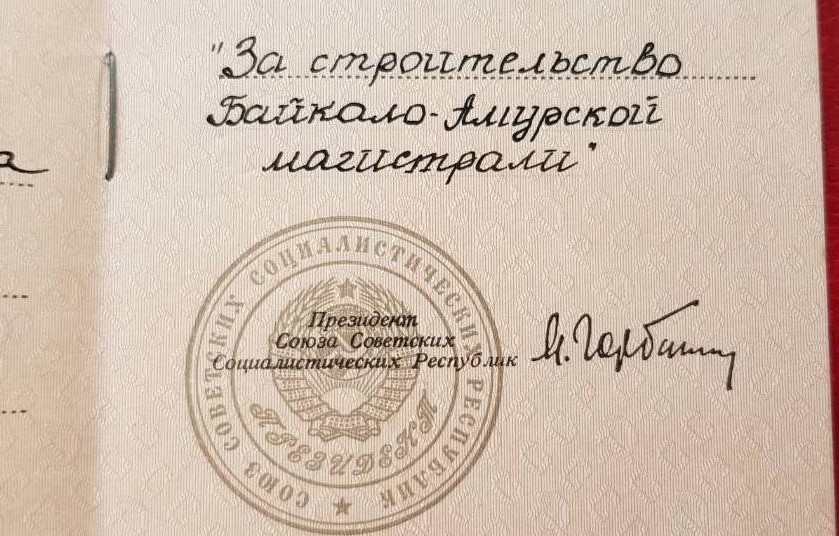 "За строительство
Байкало-Амурской
магистрали"
Президент
Союза Советских
Социалистических Республик
М. Горбачев
СОЮЗ СОВЕТСКИХ СОЦИАЛИСТИЧЕСКИХ РЕСПУБЛИК
ПРЕЗИДЕНТ
а